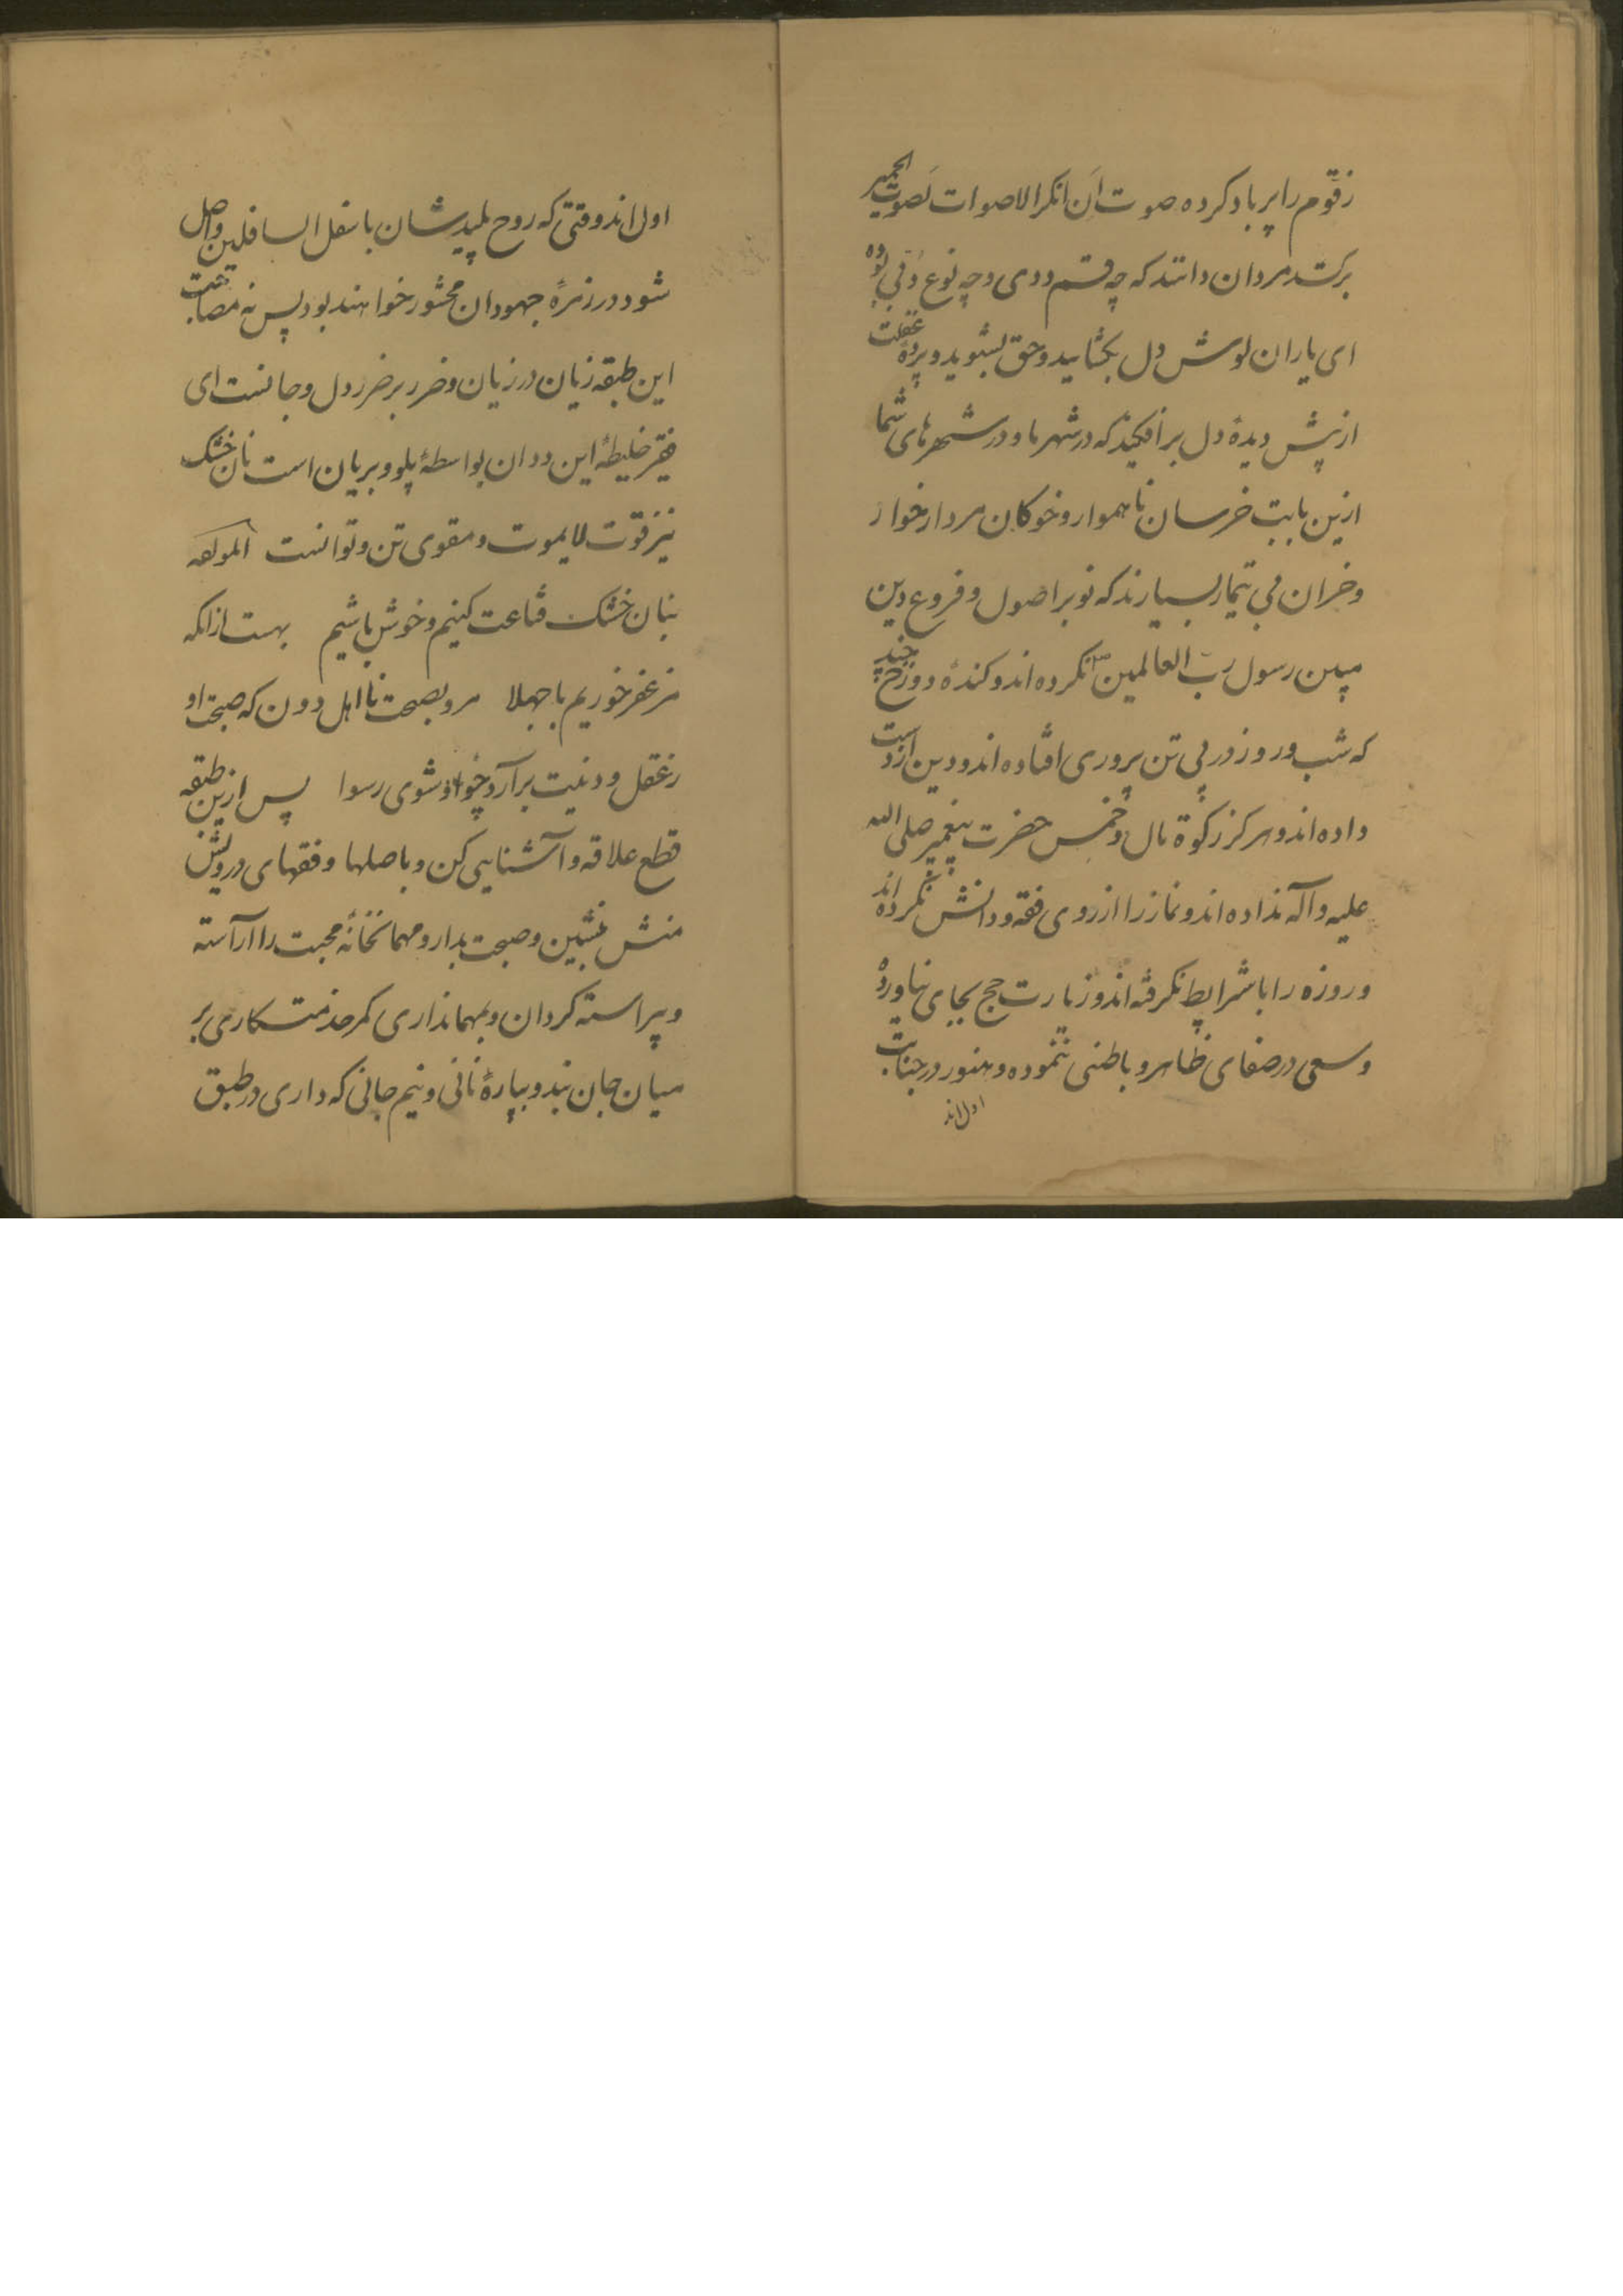 زقوم را پر باد کرده صوت ان انکر الاصوات لصوت الحمیر
برکشد مردان دانند که چه قسم ددی و چه نوع
ای یاران کوش دل بکشایید و حق بشنوید و پرده غفلت
از پیش دیدهٔ دل برافکنید که در شهر ما و در شهرهای شما
ازین بابت خرسان ناهموار و خوکان مردارخوار
و خران بی تیمار بسیارند که نو بر اصول و فروع دین
مبین رسول رب العالمین نکرده اند و کندهٔ دوزخ چند
که شب و روز در پی تن پروری افتاده اند و دین از دست
داده اند و هرکز زکوة مال و خمس حضرت پیغمبر صلی الله
علیه و آله نداده اند و نماز را از روی فقه و دانش نکرده اند
و روزه را با شرایط نکرفته اند و زیارت حج بجای نیاورده
و سعی در صفای ظاهر و باطنی ننموده و هنوز در جنابت
اول اند
اول اند وقتی که روح پلید شان باسفل السافلین واصل
شود در زمرهٔ جهودان محشور خواهند بود پس نه مصاحبت
این طبقه زیان در زیان و ضرر بر ضرر دل و جانست ای
فقیر خلیطهٔ این ددان بواسطهٔ پلو و بریان است نان خشک
نیز قوت لایموت و مقوی تن و توانست المولفه
بنان خشک قناعت کنیم و خوش باشیم بهست ازانکه
مزعفر خوریم با جهلا مرو بصحبت نااهل دون که صحبت او
ز عقل و دینت برآرد چو او شوی رسوا پس ازین طبقه
قطع علاقه و آشنایی کن و با صلحا و فقهای درویش
منش بنشین و صحبت بدار و مهمانخانهٔ محبت را آراسته
و پیراسته کردان و بمهمانداری کمر خدمتکاری بر
میان جان بند و بپارهٔ نانی و نیم جانی که داری در طبق